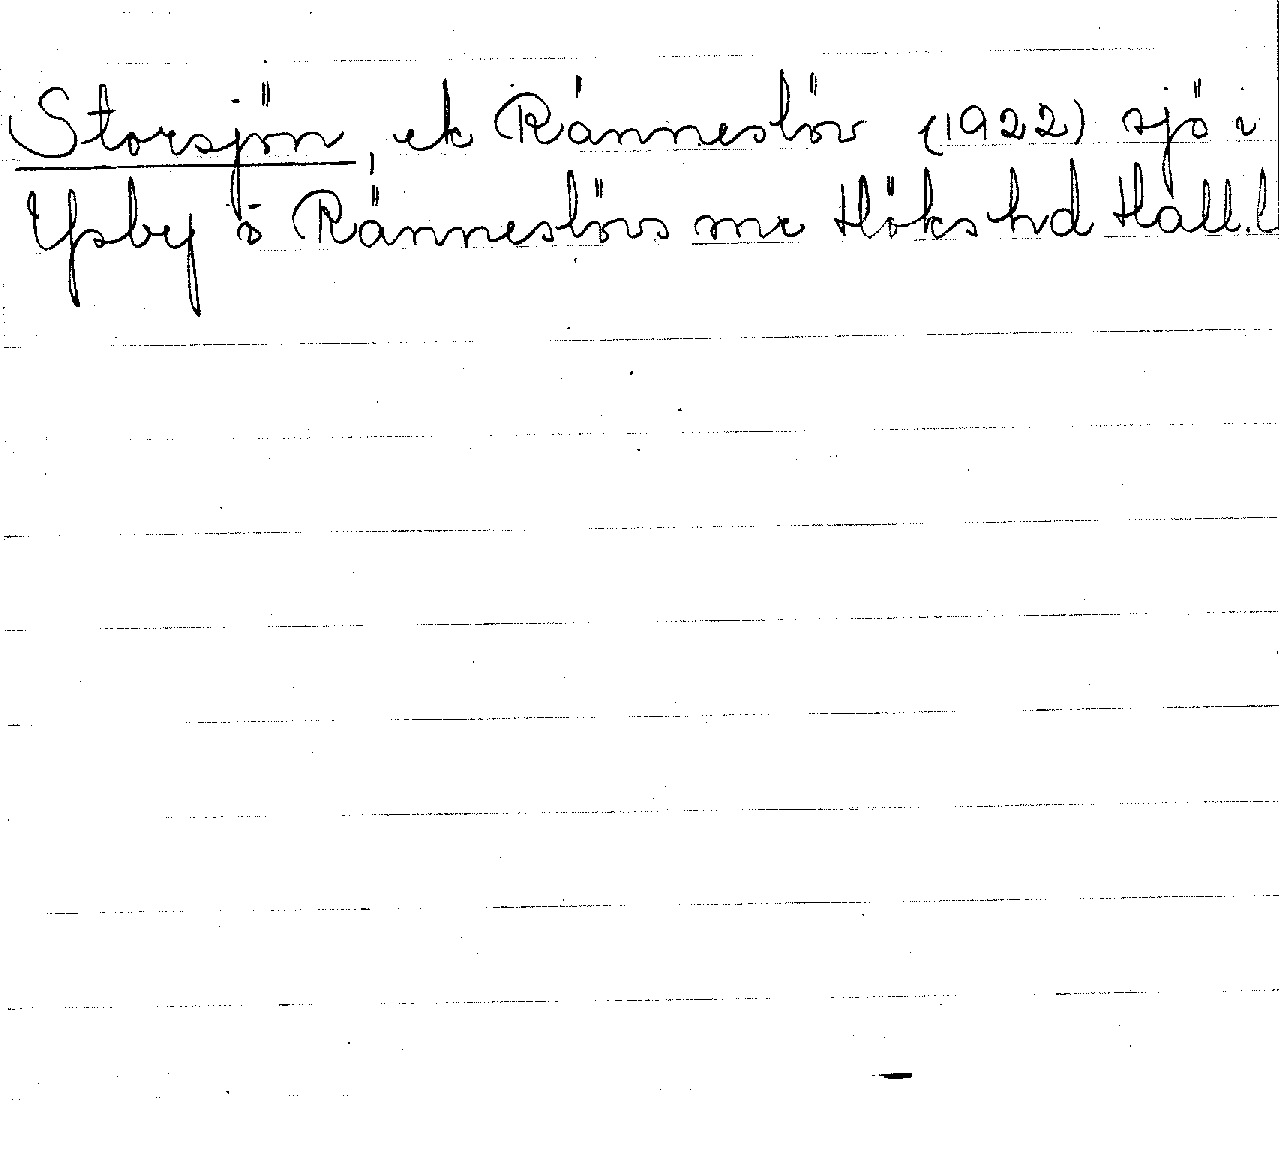 Storsjön, ek Ränneslöv (1922) sjö i
Ysby o Ränneslövs snr Höks hd Hall.l